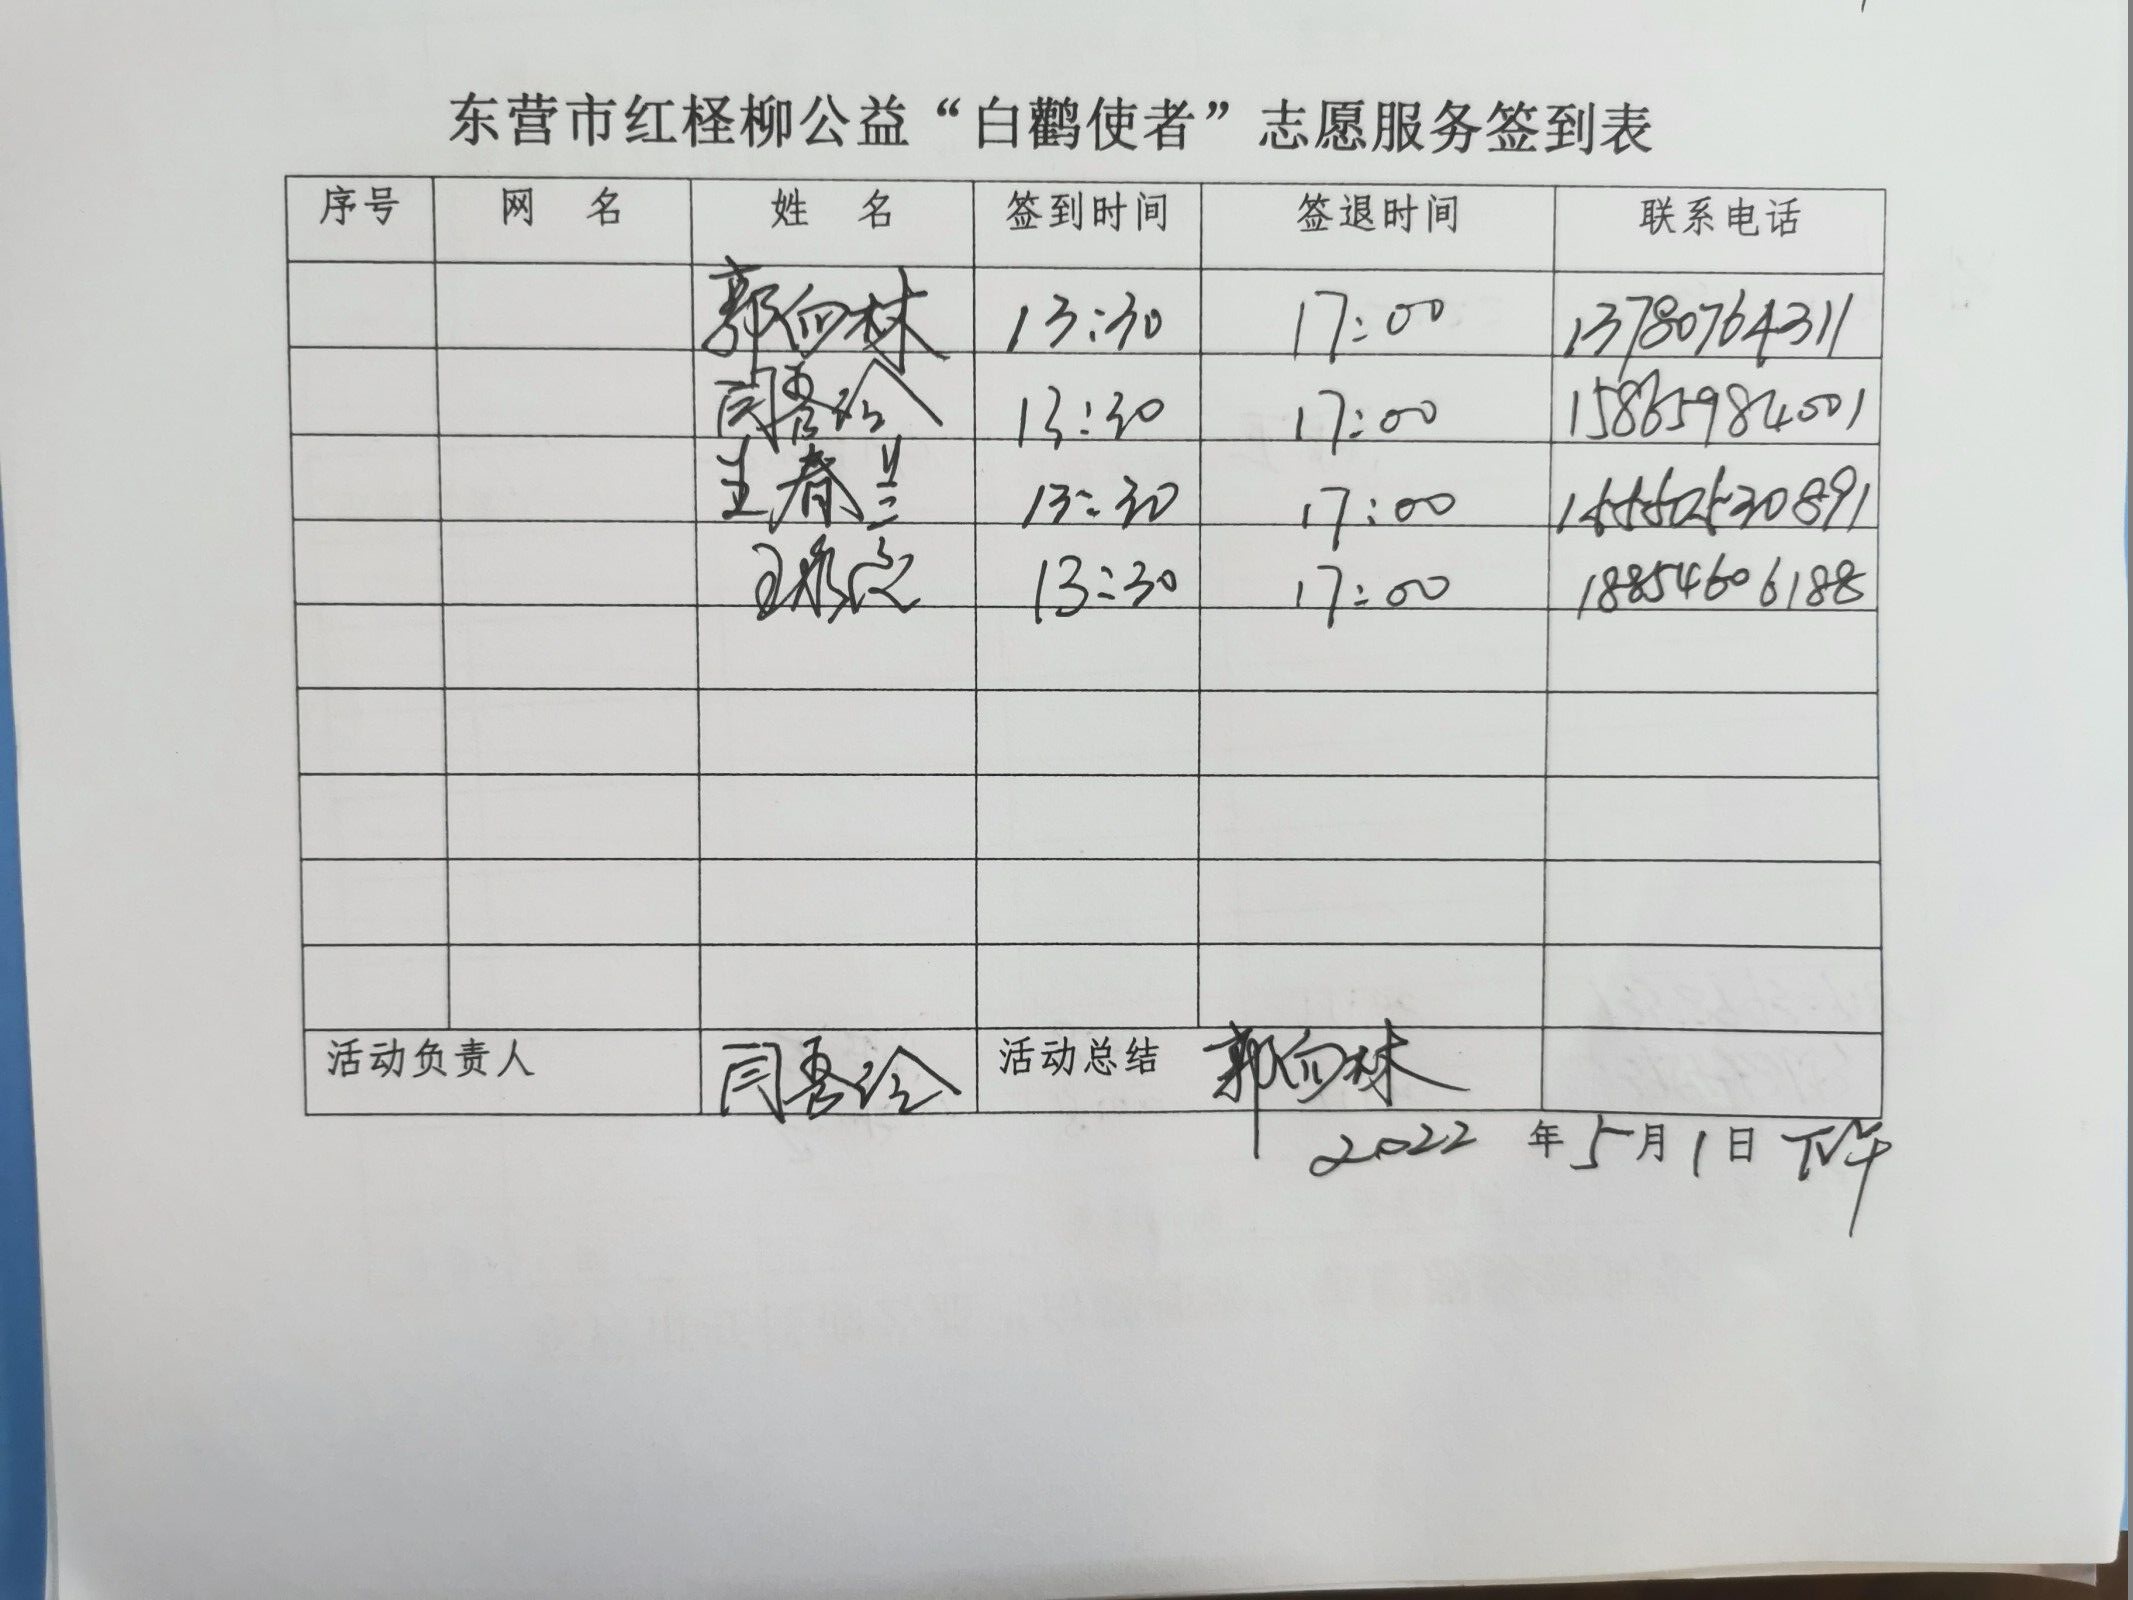 东营市红柽柳公益“白鹳使者”志愿服务签到表
序号 网 名 姓 名 签到时间 签退时间 联系电话
郭向林 13:30 17:00 13780764311
闫吾 13:30 17:00 15865984001
王春兰 13:30 17:00 15550530891
王 13:30 17:00 18854606188
活动负责人 闫吾 活动总结 郭向林
2022 年 5 月 1 日 下午